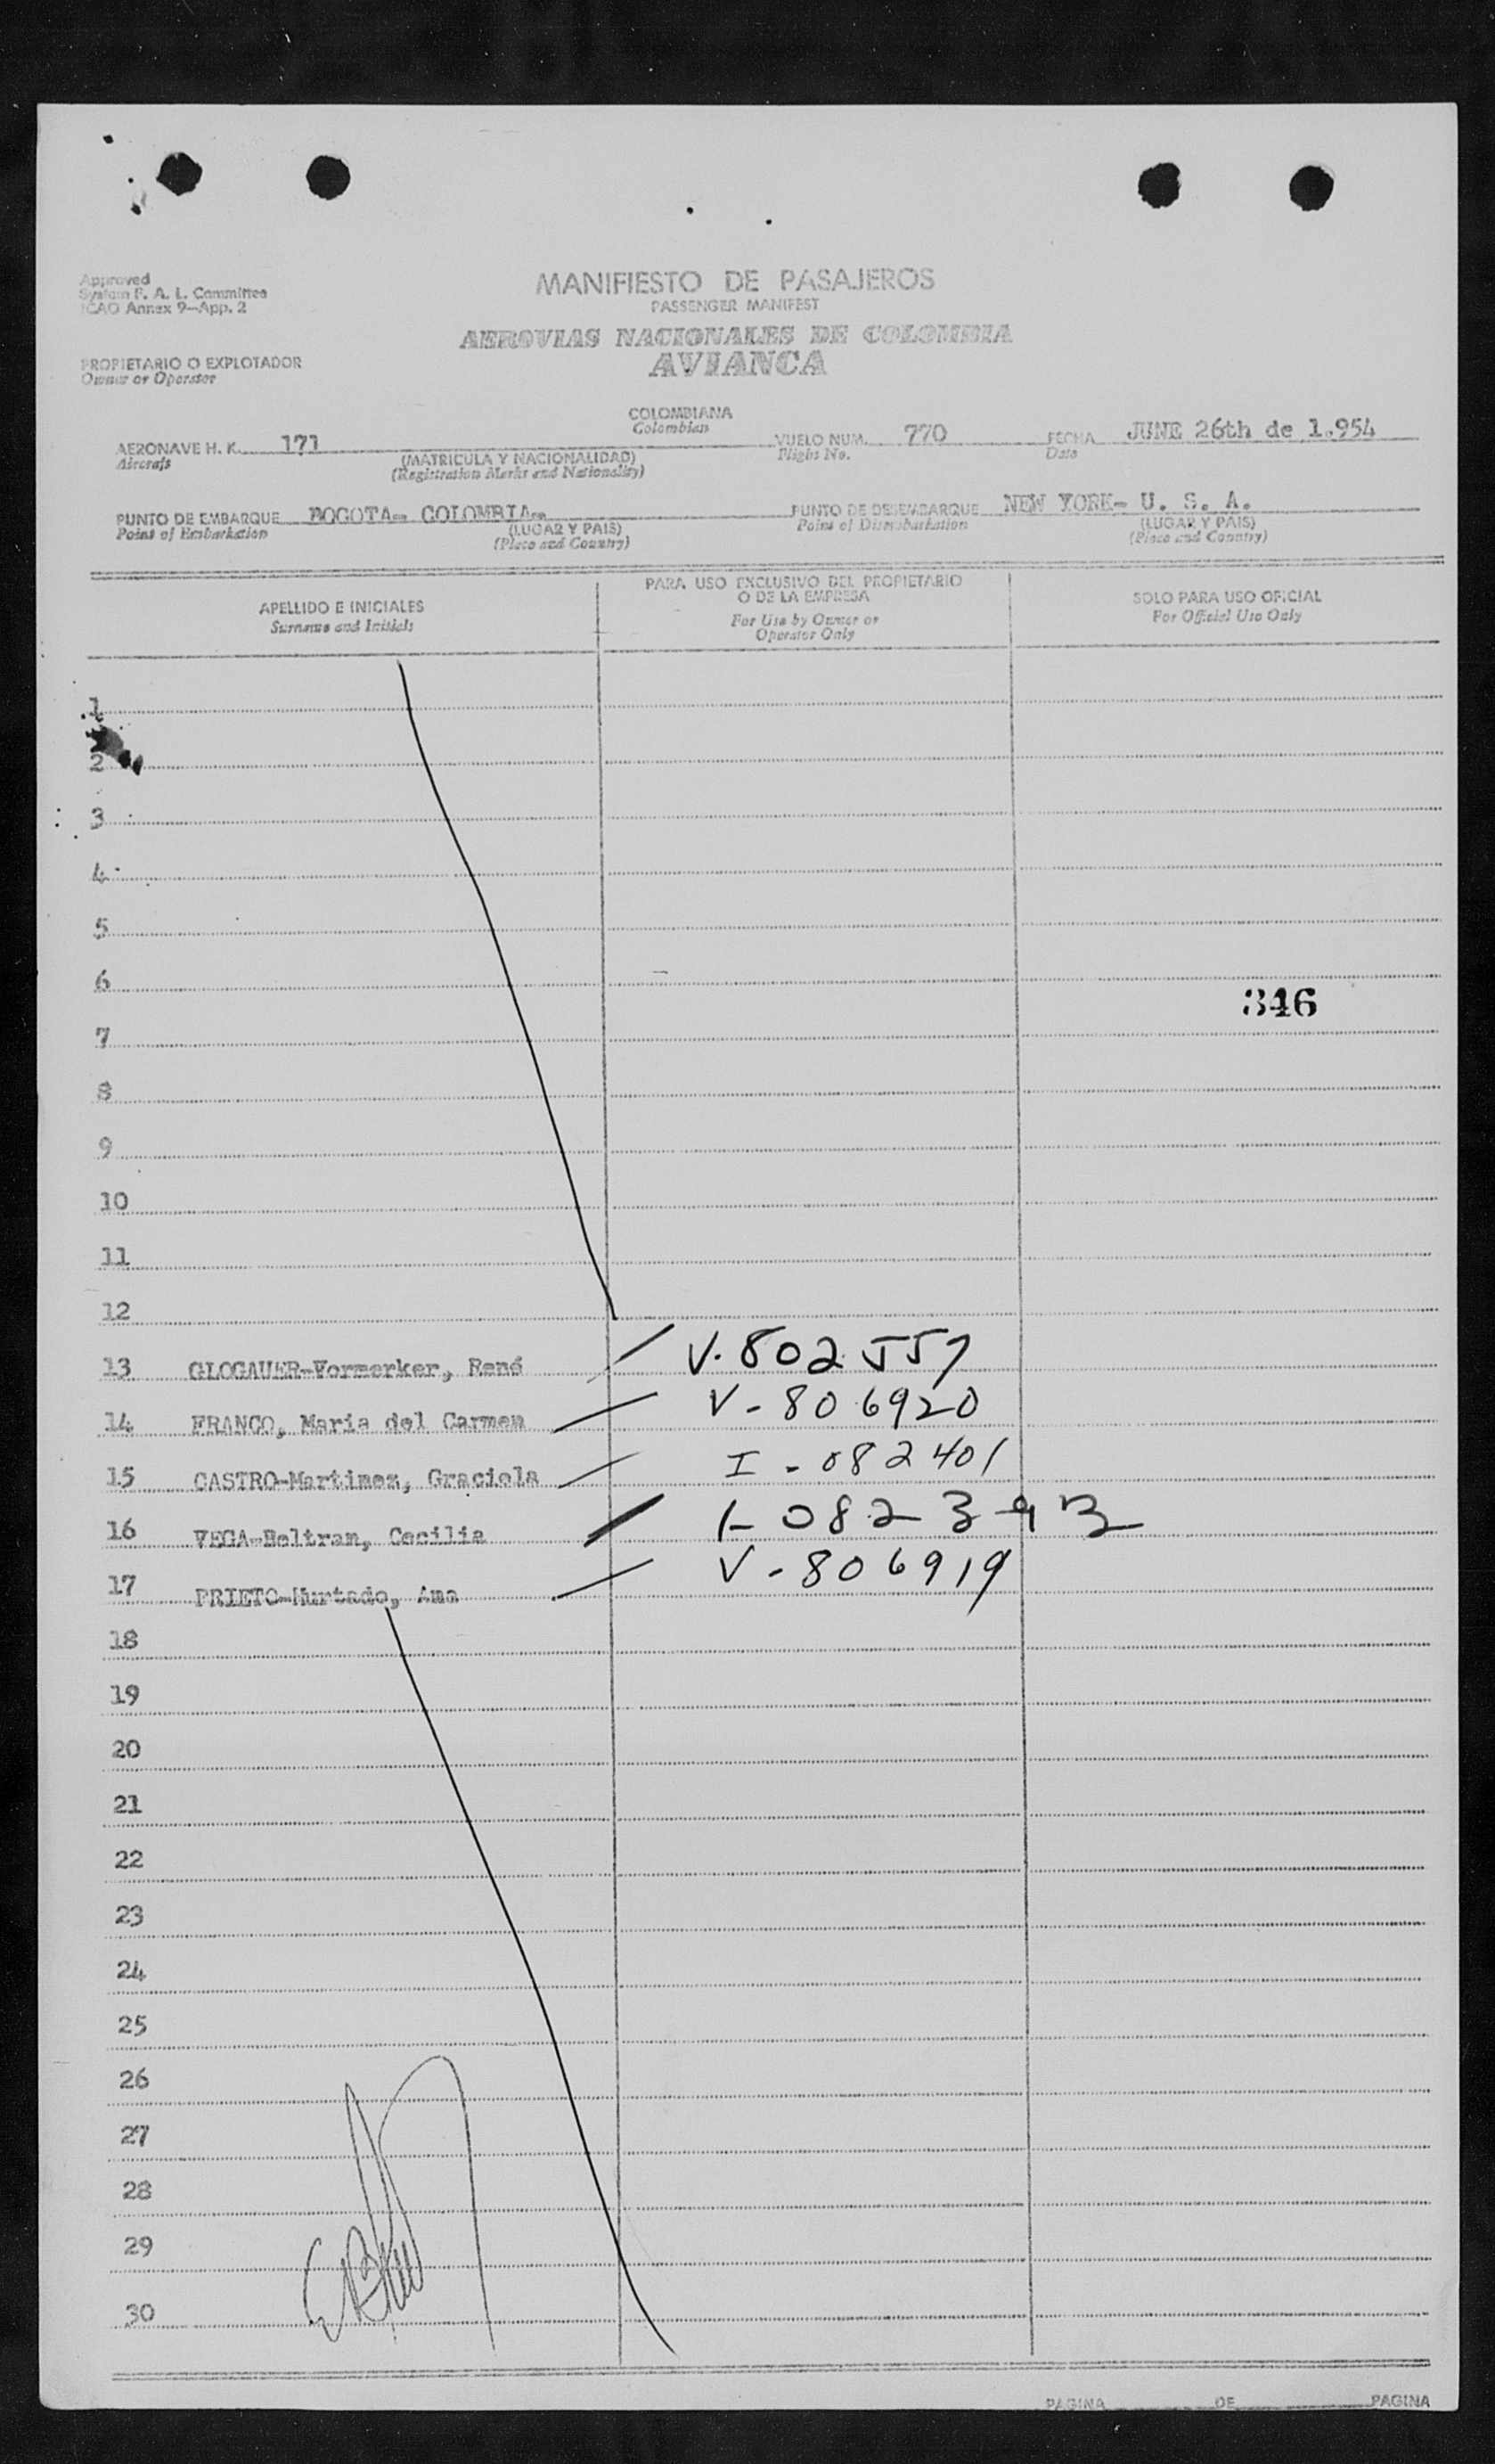 Approved
System F. A. L. Committee
ICAO Annex 9—App. 2
MANIFIESTO DE PASAJEROS
PASSENGER MANIFEST
AEROVIAS NACIONALES DE COLOMBIA
AVIANCA
PROPIETARIO O EXPLOTADOR
Owner or Operator
COLOMBIANA
Colombian
AERONAVE H. K. 171 VUELO NUM. 770 FECHA JUNE 26th de 1.954
Aircraft (MATRICULA Y NACIONALIDAD) Flight No. Date
(Registration Marks and Nationality)
PUNTO DE EMBARQUE BOGOTA- COLOMBIA- PUNTO DE DESEMBARQUE NEW YORK- U. S. A.
Point of Embarkation (LUGAR Y PAIS) Point of Disembarkation (LUGAR Y PAIS)
(Place and Country) (Place and Country)
APELLIDO E INICIALES
Surname and Initials
PARA USO EXCLUSIVO DEL PROPIETARIO
O DE LA EMPRESA
For Use by Owner or
Operator Only
SOLO PARA USO OFICIAL
For Official Use Only
1
2
3
4
5
6
346
7
8
9
10
11
12
13 GLOGAUER-Vormerker, René V-802557
14 FRANCO, Maria del Carmen V-806920
15 CASTRO-Martinez, Graciela I-082401
16 VEGA-Beltram, Cecilia I-082393
17 PRIETO-Hurtado, Ana V-806919
18
19
20
21
22
23
24
25
26
27
28
29
30
PAGINA DE PAGINA